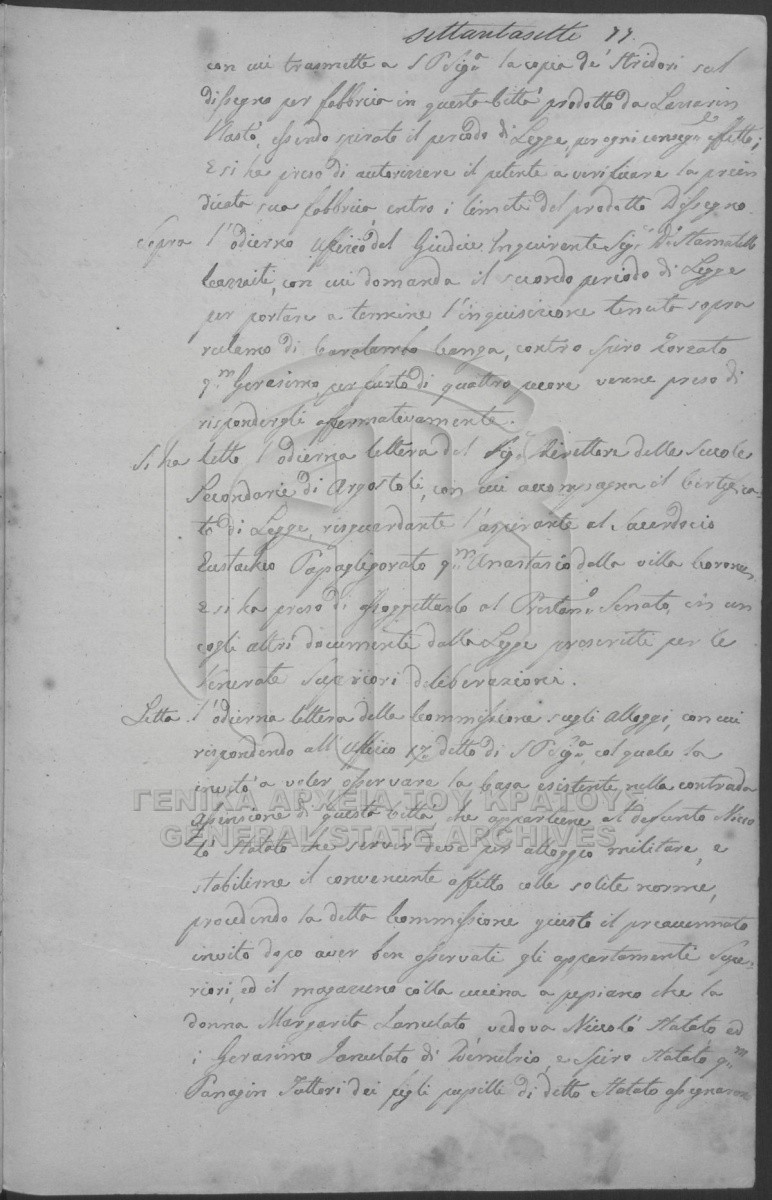 settantasette 77.
con cui trasmette a S P Sig.a la copia de' Stridori sul
dissegno per fabbrica in questa Città prodotto da Lazzarin
Vlastò, essendo spirato il periodo di Legge, per ogni conseg.e effetto;
E si ha preso di autorizzare il petente a verificare la prein
dicata sua fabbrica entro i limiti del prodotto Dissegno.
Sopra l'odierno Ufficio del Giudice Inquirente Sig.r D.r Stamatello
con cui domanda il secondo periodo di Legge
per portare a termine l'inquisizione tenuta sopra
reclamo di Caralambo Canga, contro Spiro Zorzato
q.m Gerasimo, per furto di quattro pecore venne preso di
rispondergli affermativamente.
Si ha letto l'odierna lettera del Sig.r Direttore delle Scuole
Secondarie di Argostoli, con cui accompagna il Certifica=
to di Legge, risguardante l'aspirante al Sacerdozio
Eustachio Papagligorato q.m Anastasio dalla villa
E si ha preso di assoggettarlo al Prestan.o Senato, in un
cogli altri documenti dalla Legge prescritti per le
Venerate Superiori deliberazioni.
Letta l'odierna lettera della Commissione sugli Alloggi, con cui
rispondendo all'Ufficio 17 detto di S P Sig.a, col quale la
invitò a voler osservare la Casa esistente nella contrada
di questa Città che appartiene al defunto Nico
lò Statato che servir deve per alloggio militare, e
stabilirne il conveniente affitto colle solite norme,
procedendo la detta Commissione giusto il preaccennato
invito dopo aver ben osservati gli appartamenti Supe=
riori, ed il magazzino colla cucina a pepiano che la
donna Margarita Lanulato vedova Niccolò Statato ed
i Gerasimo Lanulato di Dimitrio, e Spiro Statato q.m
Panagin Tuttori dei figli pupilli di detto Statato assignarono